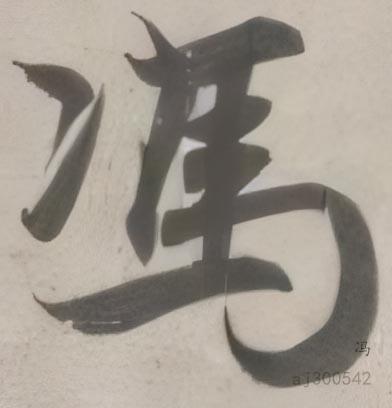 馮
冯
aj300542